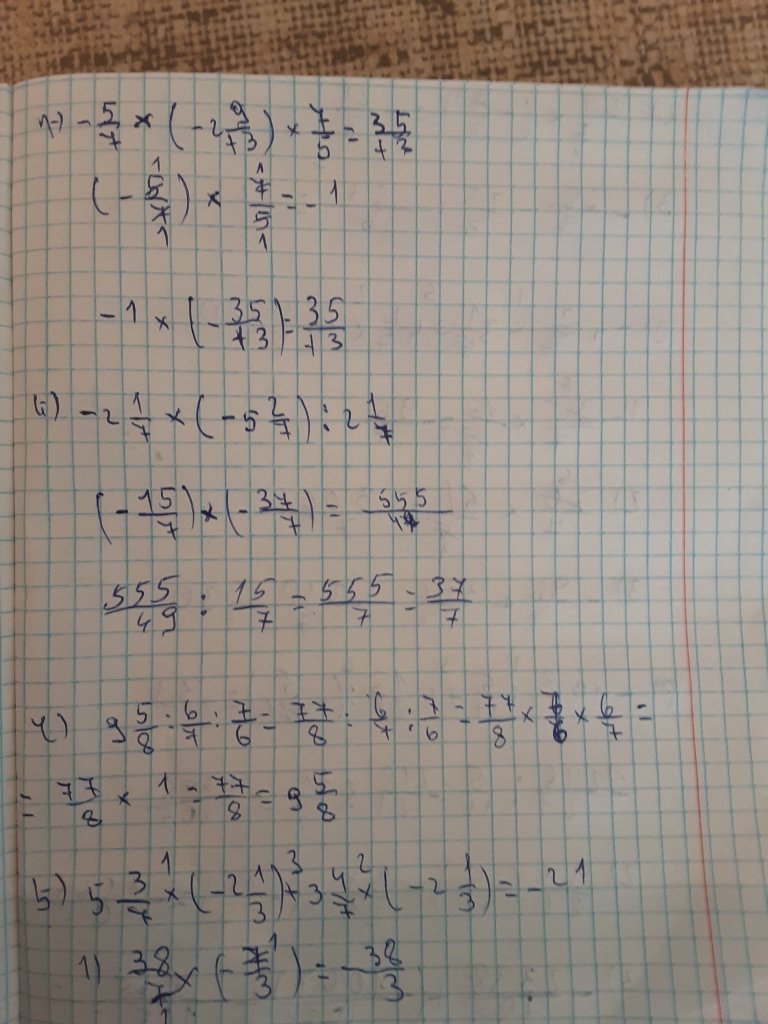 - 5/7 × (-2 9/13) × 7/5 = 35/13
(- 5/7) × 7/5 = -1
1 1
1 1
-1 × (- 35/13) = 35/13
-2 1/7 × (-5 2/7) : 2 1/7
(- 15/7) × (- 37/7) = 555/49
555/49 : 15/7 = 555/7 = 37/7
4) 9 5/8 : 6/7 : 7/6 = 77/8 : 6/7 : 7/6 = 77/8 × 7/6 × 6/7 =
= 77/8 × 1 = 77/8 = 9 5/8
1 3 2
5) 5 3/7 × (-2 1/3) + 3 4/7 × (-2 1/3) = -21
1) 38/7 × (- 7/3) = - 38/3
1 1